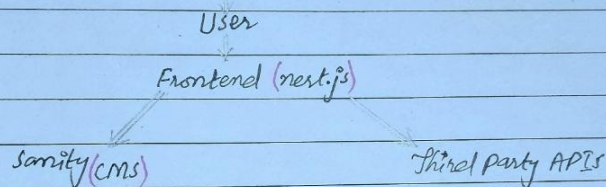 User
Frontend (nest.js)
Sanity (CMS)
Third Party APIs